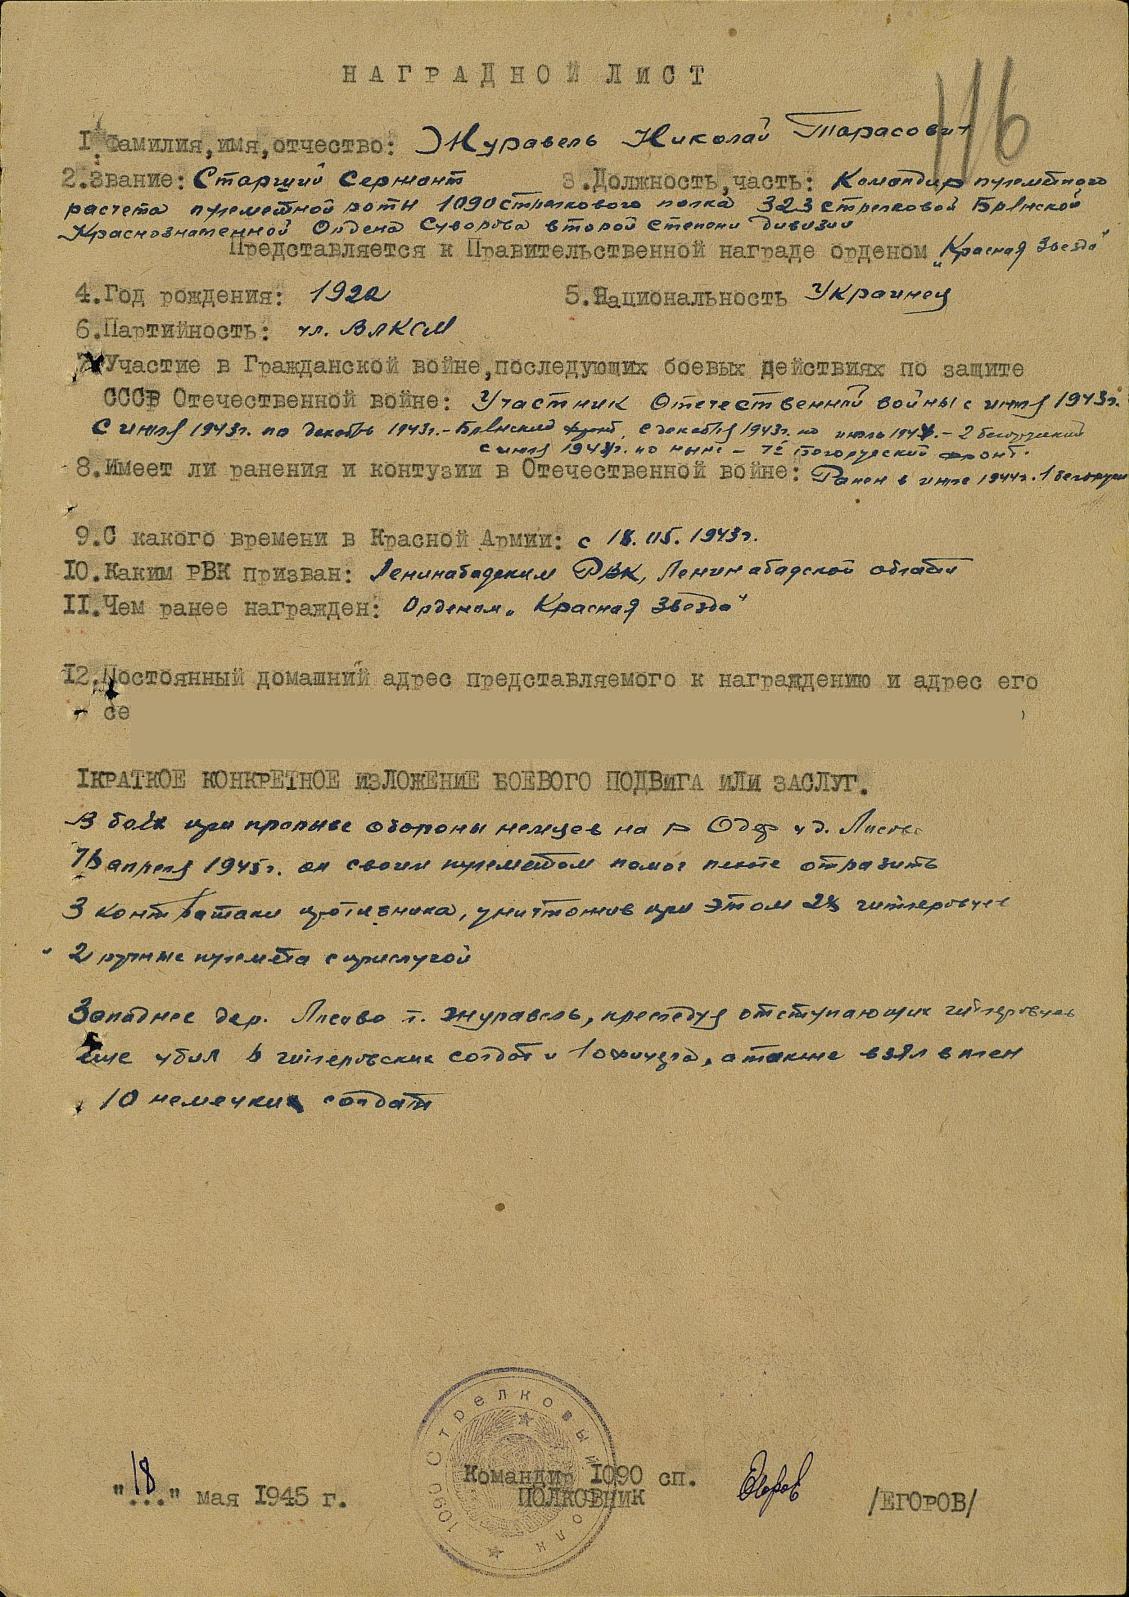 НАГРАДНОЙ ЛИСТ
116
1. Фамилия, имя, отчество: Журавель Николай Тарасович
2. Звание: Старший Сержант 3. Должность, часть: Командир пулеметного
расчета пулеметной роты 1090 стрелкового полка 323 стрелковой Брянской
Краснознаменной Ордена Суворова второй степени дивизии
Представляется к Правительственной награде орденом „Красная Звезда"
4. Год рождения: 1922 5. Национальность Украинец
6. Партийность: чл. ВЛКСМ
7. Участие в Гражданской войне, последующих боевых действиях по защите
СССР Отечественной войне: Участник Отечественной войны с июля 1943г.
С июля 1943г. по декабрь 1943г. – Брянский фронт, с декабря 1943г. по июль 1944. – 2 белорусский
с июля 1944г. по ныне – 1й Белорусский фронт.
8. Имеет ли ранения и контузии в Отечественной войне: Ранен в июле 1944г. 1 белорусс
9. С какого времени в Красной Армии: с 18.05.1943г.
10. Каким РВК призван: Ленинабадским РВК, Ленинабадской области
11. Чем ранее награжден: Орденом „Красная Звезда"
12. Постоянный домашний адрес представляемого к награждению и адрес его
се
1 КРАТКОЕ КОНКРЕТНОЕ ИЗЛОЖЕНИЕ БОЕВОГО ПОДВИГА ИЛИ ЗАСЛУГ.
В боях при прорыве обороны немцев на р Одер у д. Лисово
16 апреля 1945г. он своим пулеметом помог пехоте отразить
3 контратаки противника, уничтожив при этом гитлеровцев
2 ручные пулемета с прислугой
Западнее дер. Лисово т. Журавель, преследуя отступающих гитлеровцев
еще убил 6 гитлеровских солдат и 1 офицера, а также взял в плен
10 немецких солдат
"18" мая 1945 г. Командир 1090 сп. Егоров
ПОЛКОВНИК /ЕГОРОВ/
1090 Стрелковый полк